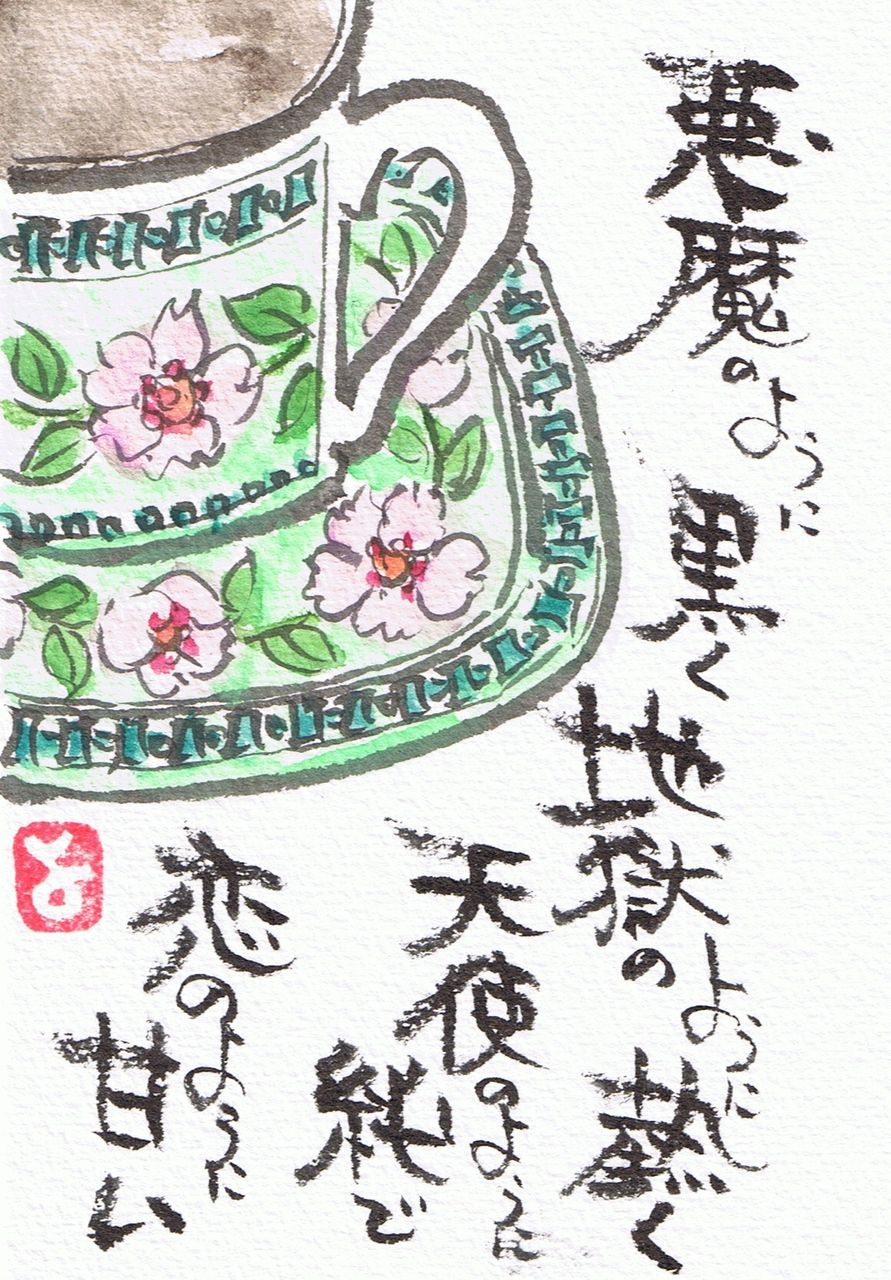 悪魔のように黒く
地獄のように熱く
天使のように
純で
恋のように
甘い